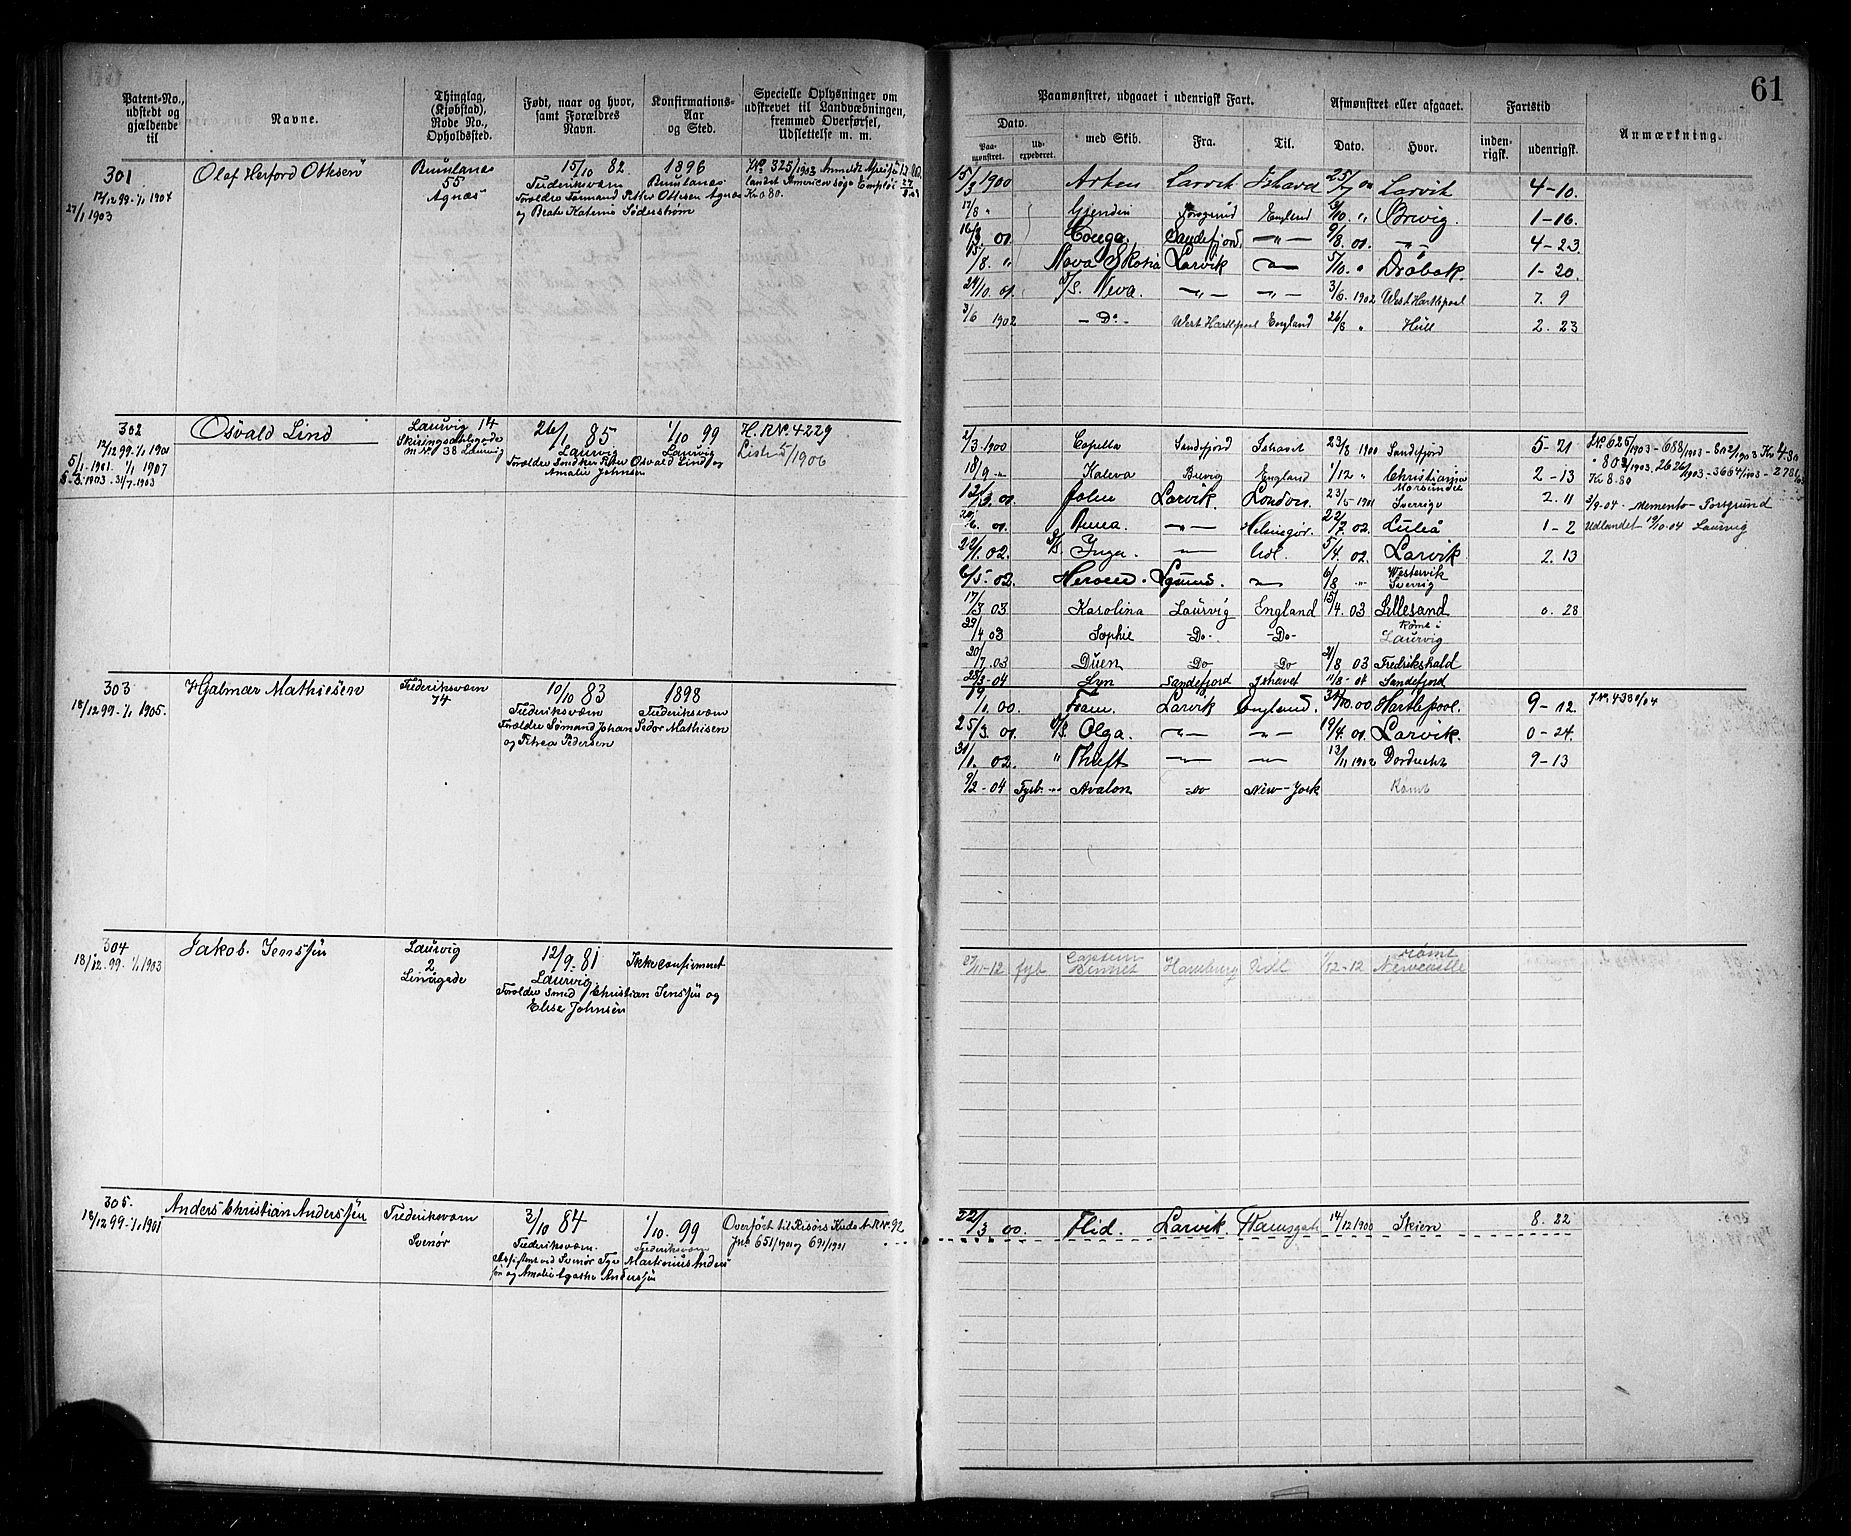 61
Patent-No., udstedt og gjældende til
Navne.
Thinglag, (Kjøbstad), Rode No., Opholdssted.
Født, naar og hvor, samt Forældres Navn.
Konfirmations-Aar og Sted.
Specielle Oplysninger om udskrevet til Landvæbningen, fremmed Overførsel, Udslettelse m. m.
Paamønstret, udgaaet i udenrigsk Fart.
Dato.
Paamønstret.
Udexpederet.
med Skib.
Fra.
Til.
Afmønstret eller afgaaet.
Dato.
Hvor.
Fartstid
indenrigsk.
udenrigsk.
Anmærkning.
301
12/12 99. 1/1 1904
27/1 1903
Olaf Herford Ottesen
Brunlanes
55
Agnæs
15/10 82
Frederiksværn
Forældre Sømand Petter Ottesen Agnæs
og Beate Katrine Söderstrøm
1896
Brunlanes
No 325/1903
Kr 0.80.
15/3 1900 Larvik Ishavet 25/7 00 Larvik 4-10.
17/8 " England 3/10 " Brevig. 1-16.
Conga. Sandefjord. -"- 9/8. 01. -"- 4-23
15/8. " Nova Skotia Larvik -"- 5/10. " Drøbak. 1-20.
24/10. 01. S/S. Neva. -"- -"- 3/6. 1902 West Hartlepool 7. 9
3/6 1902 -Do- West Hartlepool England 26/8 " Hull 2. 23
302
12/12 99. 1/1 1901
5/1 1901. 1/1 1907
5-3. 1903. 31/7. 1903
Osvald Lind
Laurvig 14
Skiringsalsgade
m No 38 Laurvig
26/1 85
Laurvig
Osvald Lind og
Amalie Johnsen
1/10 99
Laurvig
H. R No. 4229
Liste 5/1906
2/3 1900 Capella Sandefjord Ishavet 23/8 1900 Sandefjord 5-21
18/9 -"- Kaleva Brevig England 1/12 " Christiania 2-13
12/3. 01. John Larvik. London. 23/5 1901 Sverrige 2. 11
01. -"- Helsingør. 22/7 02. Luleå 1-2
22/1. 02. S/S. Inga. -"- Udl. 5/4. 02. Larvik. 2. 13
6/5-02. -"- 6/8 " Westervik Sverrig
17/3 03 Karolina Laurvig England 15/4. 03 Lillesand 0. 28
29/4 03 Sophie -Do- -Do- Rømt i Laurvig
20/7. 03 Duen Do Do 21/8 03 Fredrikshald
28/3-04 Lyn Sandefjord Ishavet 11/8-04 Sandefjord
Kr 8.80
3/9-04 - Memento - Porsgrund
Udlandet - 19/10-04 Laurvig
303
18/12 99. 1/1 1905.
Hjalmar Mathiesen
Frederiksværn
74
10/10 83
Frederiksværn
Forældre Sømand Johan Fedor Mathisen
og Petrea Pedersen
1898
Frederiksværn
19/1. 00. Fram. Larvik England. 31/10. 00 Hartlepool. 9-12.
J No. 4380/04
25/3. 01. S/S. Olga. -"- -"- 19/4. 01. Larvik. 0-24.
31/1. 02. " Thrift -"- -"- 13/11 1902 Dordrecht 9-13
9/2-04 Avalon Do New-York Rømt
304
18/12. 99. 1/1 1903
Jakob. Jenssen
Laurvig
2
Lindgade
12/9. 81
Laurvig
Forældre Smed Christian Jenssen og
Elise Johnsen
Ikke confirmeret
27/11-12 Captein Bennet Hamburg 1/12-12 Rømt Newcastle
305.
18/12 99. 1/1 1901
Anders Christian Anderssen
Frederiksværn
Svenør
3/10 84
Frederiksværn.
Assistent ved Svenør Fyr Martinius Anders
sen og Amalie Agathe Anderssen
1/10. 99
Frederiksværn
Overført til Risørs Kreds A. R No. 92
Jno 651/1901 og 691/1901
22/3. 00. Flid. Larvik. Ramsgate 14/12 1900 Skien 8. 22